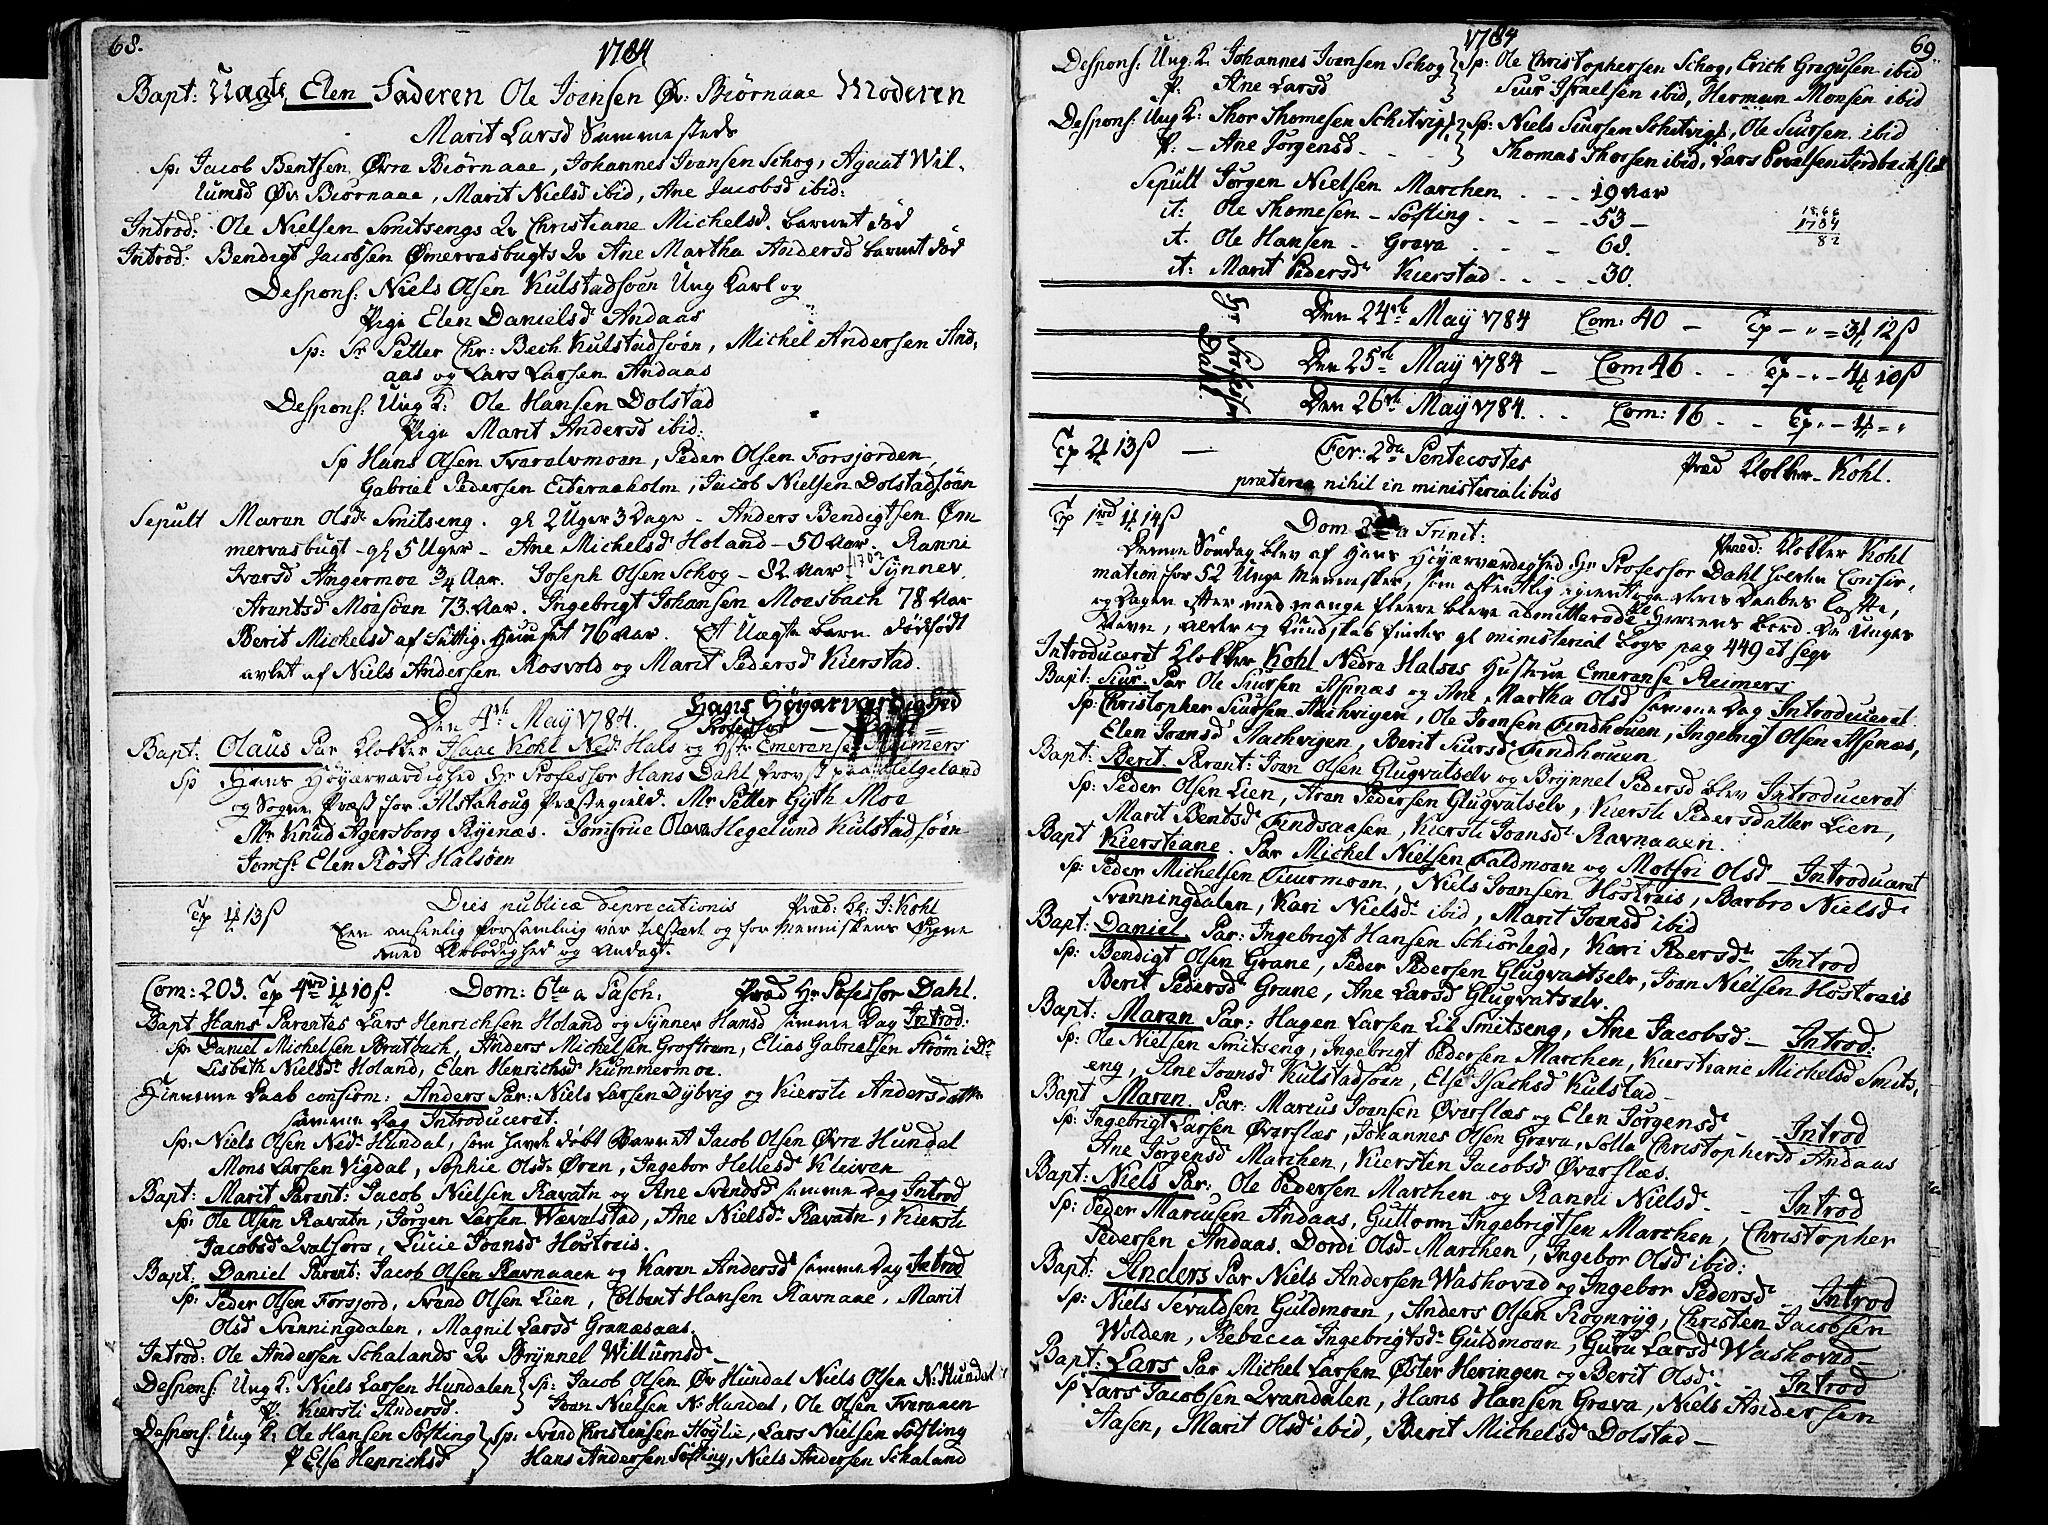 68.
1784
Bapt: Uægte Elen Faderen Ole Joensen Øv: Biørnaae Moderen
Marit Larsd Sammesteds
Sp: Jacob Bentsen Øvre Biørnaae, Johannes Ivansen Schog, Agaat Wil-
lumsd Øv: Biørnaae, Marit Nielsd ibid, Ane Jacobsd ibid:
Introd: Ole Nielsen Smitsengs Qv Christiane Michelsd. barnet død
Introd: Bendigt Jacobsen Ømervasbugts Qv Ane Martha Andersd barnet død
Despons: Niels Olsen Kulstadsøen Ung Karl og
Pige Elen Danielsd Andaas
Sp: Sr Petter Chr: Bech Kulstadsøen, Michel Andersen And,
aas og Lars Larsen Andaas
Despons: Ung K: Ole Hansen Dolstad
Pige Marit Andersd ibid:
Sp Hans Olsen Tveraelvmoen, Peder Olsen Forsjorden
Gabriel Pedersen Eiteraaholm, Jacob Nielsen Dolstadsøen
Sepult Maren Olsd Smitseng. gl 2 Uger 3 Dage - Anders Bendigtsen Øm
mervasbugt - gl 5 Uger - Ane Michelsd Holand - 50 Aar. Ranni
Ivarsd Angermoe 3/4 Aar. Joseph Olsen Schog - 82 Aar Synnev.
Arentsd Moesøen 73 Aar. Ingebrigt Johansen Moesbach 78 Aar
Berit Michelsd af Fattig Huuset 76 Aar. Et Uægte barn dødfødt
avlet af Niels Andersen Rosvold og Marit Pedersd Kierstad.
Den 4de May 1784. Hans Høyærværdighed
Professor
Bapt: Olaus Par Klokker Isaac Kohl Ned: Hals og Hstr Emerense Reimers
Sp Hans Høyærværdighed Hr Professor Hans Dahl Provst paa Helgeland
og Sogne Præst for Alstahoug Præstegield. Mr Petter Gyth Moe
Mr Knud Agersborg Rynæs. Jomfrue Olava Hegelund Kulstadsøen
Jomf: Elen Røst Halsøen
Tp 1# 13ß Dies publicæ deprecationis Præd: Kl: J: Kohl
Een anseelig forsamling var tilstæde og for Menneskens Øyne
med Ærbødighed og Andagt.
Com: 203. Tp 4rd 1# 10ß. Dom: 6ta a Pasch: Præd Hr Professor Dahl.
Bapt Hans Parentes Lars Henrichsen Holand og Synnev Hansd samme Dag Introd:
Sp: Daniel Michelsen Bratbach, Anders Michelsen Grofttrem, Elias Gabrielsen
Lisbeth Nielsd Holand, Elen Henrichsd Kummermoe.
Hiemme Daab confirm: Anders Par: Niels Larsen Dybvig og Kiersti Andersdatter
samme Dag Introduceret.
Sp: Niels Olsen Ned: Hundal, som havde døbt Barnet Jacob Olsen Øvre Hundal
Mons Larsen Vigdal, Sophie Olsd Øren, Ingebor Hellesd Kleiven
Bapt: Marit Parent: Jacob Nielsen Ravatn og Ane Svendsd samme Dag Introd
Sp: Ole Olsen Ravatn, Jørgen Larsen Wævelstad, Ane Nielsd Ravatn, Kiersti
Jacobsd Qvalfors, Lucie Joensd Hostreis.
Bapt: Daniel Parent: Jacob Olsen Ravnaaen og Karen Andersd samme Dag Introd
Sp: Peder Olsen Forsjord, Svend Olsen Lien, Colbent Hansen Ravnaae, Marit
Olsd Svenningdalen, Magnil Larsd Granesaas
Introd: Ole Andersen Schalands Qv Brynnel Willumsd
Despons: Ung K: Niels Larsen Hundalen Sp: Jacob Olsen Øv Hundal Niels Olsen N: Hundal
P Kiersti Andersd. Joen Nielsen N: Hundal, Ole Olsen Tveraaen
Despons: Ung K: Ole Hansen Søfting Sp: Svend Christensen Høylie, Lars Nielsen Søfting
P Else Henrichsd Hans Andersen Søfting, Niels Andersen Schaland
1784
69
Despons: Ung: K Johannes Ivansen Schog Sp: Ole Christophersen Schog, Erich Gregusen ibid
P: Ane Larsd Siur Israelsen ibid, Herman Monsen ibid
Despons: Ung K: Thor Thomesen Schitvig Sp: Niels Siursen Schitvig, Ole Siursen ibid
P: - Ane Jørgensd Thomas Thorsen ibid, Lars Povelsen
Sepult Jørgen Nielsen Marchen - - - 19 Aar
it: Ole Thomesen - Søfting - - - 53 -
it. Ole Hansen - Greva - - - 68.
it: Marit Pedersd Kierstad - - - 30.
1866
1784
82
Hr Professor
Dahl.
Den 24de May 1784 Com: 40 - Tp - " = 3# 12ß
Den 25de May 1784 - Com 46 - - Tp - " - 4# 10ß
Den 26de May 1784. - - Com: 16 - - Tp " - 4# - "
Tp 2# 13ß - Fer: 2da Pentecostes Præd Klokker Kohl.
præterea nihil in ministerialibus
Tp 1rd 1# 14ß Dom 2da a Trinit: Præd: Klokker Kohl
Denne Søndag blev af Hans Høyærværdighed Hr Professor Dahl holden Confir,
mation for 52 Unge Mennesker, som offentlig igientog deres Daabes Løfte,
og Dagen efter med mange fleere bleve admitterede til Herrens bord. De Unges
Navne, Alder og Kundskab findes gl ministerial bogs pag 449 et seqv
Introduceret Klokker Kohl Nedre Halses Hustrue Emerense Reimers
Bapt: Siur. Par Ole Siursen Aspnæs og Ane Martha Olsd samme Dag Introduceret
Sp: Christopher Siursen Aachvigen, Ole Joensen Findhouen, Ingebrigt Olsen Aspnæs,
Elen Joensd Aachvigen, Berit Siursd Findhouen
Bapt: Berit. Parent: Joen Olsen Glugvatselv og Brynnel Pedersd blev Introduceret
Sp: Peder Olsen Lien, Aren Pedersen Glugvatselv, Kiersti Pedersdatter Lien,
Marit Bentsd Findsaasen, Kiersti Joensd Ravnaaen.
Bapt Kierstiane. Par Michel Nielsen Faldmoen og Malfri Olsd Introduceret
Sp: Peder Michelsen Tuurmoen, Niels Joensen Hostreis, Barbro Nielsd
Svenningdalen, Kari Nielsd ibid, Marit Joensd ibid
Bapt: Daniel. Par: Ingebrigt Hansen Schiørlegd, Kari Pedersd Introd
Sp: Bendigt Olsen Grane, Peder Pedersen Glugvatselv, Joen Nielsen Hostreis
Berit Pedersd Grane, Ane Larsd Glugvatselv.
Bapt: Maren Par: Hagen Larsen Lil Smitseng, Ane Jacobsd - Introd:
Sp: Ole Nielsen Smitseng, Ingebrigt Pedersen Marchen, Kierstiane Michelsd Smits,
eng, Ane Joensd Kulstadsøen, Else Isachsd Kulstad -
Bapt Maren. Par: Marcus Joensen Øverflæs og Elen Jørgensd - Introd
Sp: Ingebrigt Larsen Øverflæs, Johannes Olsen Greva, Solle Christophersd Andaas
Ane Jørgensd Marchen, Kiersten Jacobsd Øverflæs.
Bapt: Niels Par: Ole Pedersen Marchen og Ranni Nielsd - - Introd
Sp: Peder Marcusen Andaas, Guttorm Ingebrigtsen Marchen, Christopher
Pedersen Andaas. Dordi Olsd Marchen, Ingebor Olsd ibid:
Bapt: Anders Par Niels Andersen Washoved og Ingebor Pedersd Introd
Sp: Niels Sevaldsen Guldmoen, Anders Olsen Rognryg, Christen Jacobsen
Wolden, Rebecca Ingebrigtsd Guldmoen, Guru Larsd Washoved -
Bapt: Lars Par Michel Larsen Øster Heringen og Berit Olsd Introd
Sp Lars Jacobsen Qvandalen, Hans Hansen Greva, Niels Andersen
Aasen, Marit Olsd ibid, Berit Michelsd Dolstad -